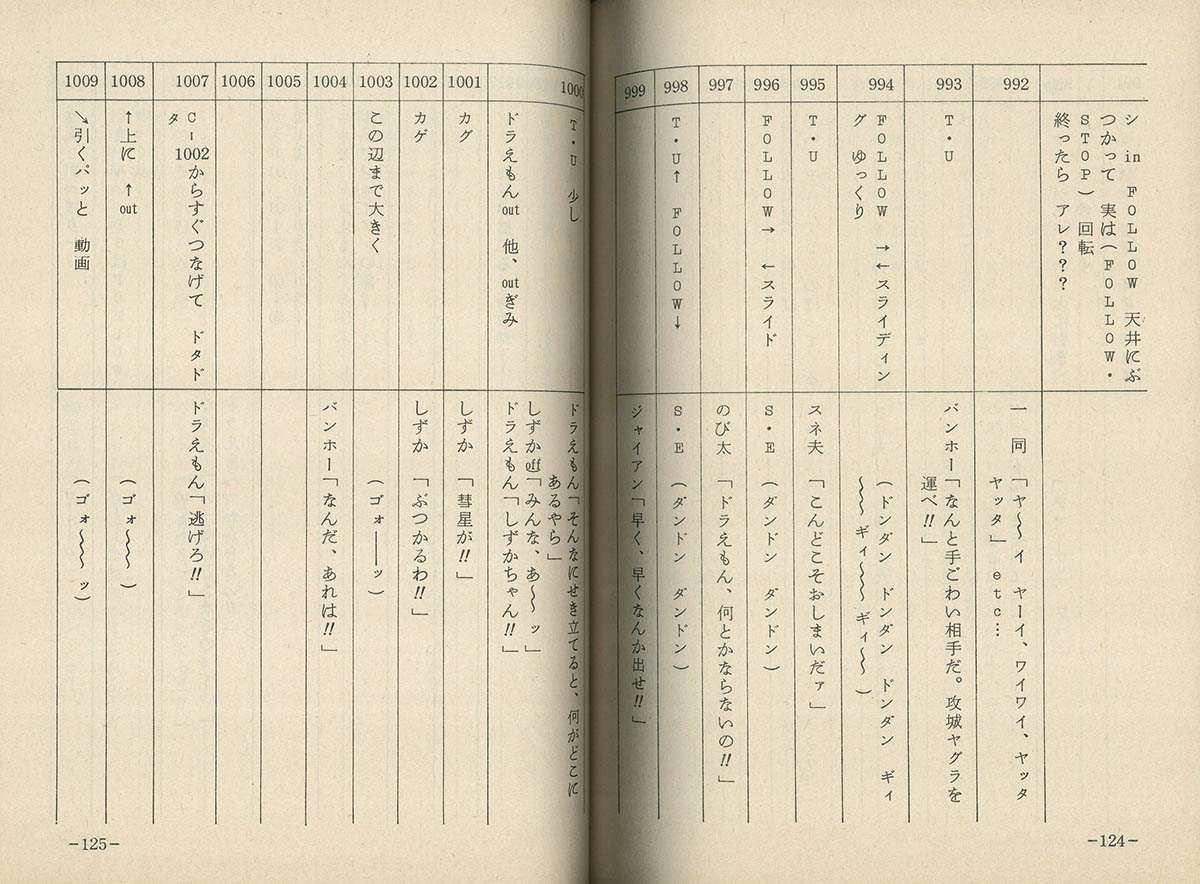 シ in FOLLOW 天井にぶ
つかって 実は(FOLLOW・
STOP)回転
終ったら アレ???
992
一同「ヤ〜〜イ ヤーイ、ワイワイ、ヤッタ
ヤッタ」etc…
993
T・U
バンホー「なんと手ごわい相手だ。攻城ヤグラを
運べ!!」
994
FOLLOW →←スライディン
グ ゆっくり
(ドンダン ドンダン ドンダン ギィ
〜〜〜 ギィ〜〜〜 ギィ〜〜〜)
995
T・U
スネ夫「こんどこそおしまいだァ」
996
FOLLOW→ ←スライド
S・E (ダンドン ダンドン)
997
のび太「ドラえもん、何とかならないの!!」
998
T・U↑ FOLLOW↓
S・E (ダンドン ダンドン)
999
ジャイアン「早く、早くなんか出せ!!」
-124-
1000
T・U 少し
ドラえもんout 他、outぎみ
ドラえもん「そんなにせき立てると、何がどこに
あるやら」
しずかoff「みんな、あ〜〜ッ」
ドラえもん「しずかちゃん!!」
1001
カグ
しずか「彗星が!!」
1002
カゲ
しずか「ぶつかるわ!!」
1003
この辺まで大きく
(ゴォ――ッ)
1004
バンホー「なんだ、あれは!!」
1005
1006
1007
C-1002からすぐつなげて ドタド
タ
ドラえもん「逃げろ!!」
1008
↑上に ↑out
(ゴォ〜〜〜)
1009
↘引くパッと 動画
(ゴォ〜〜〜ッ)
-125-